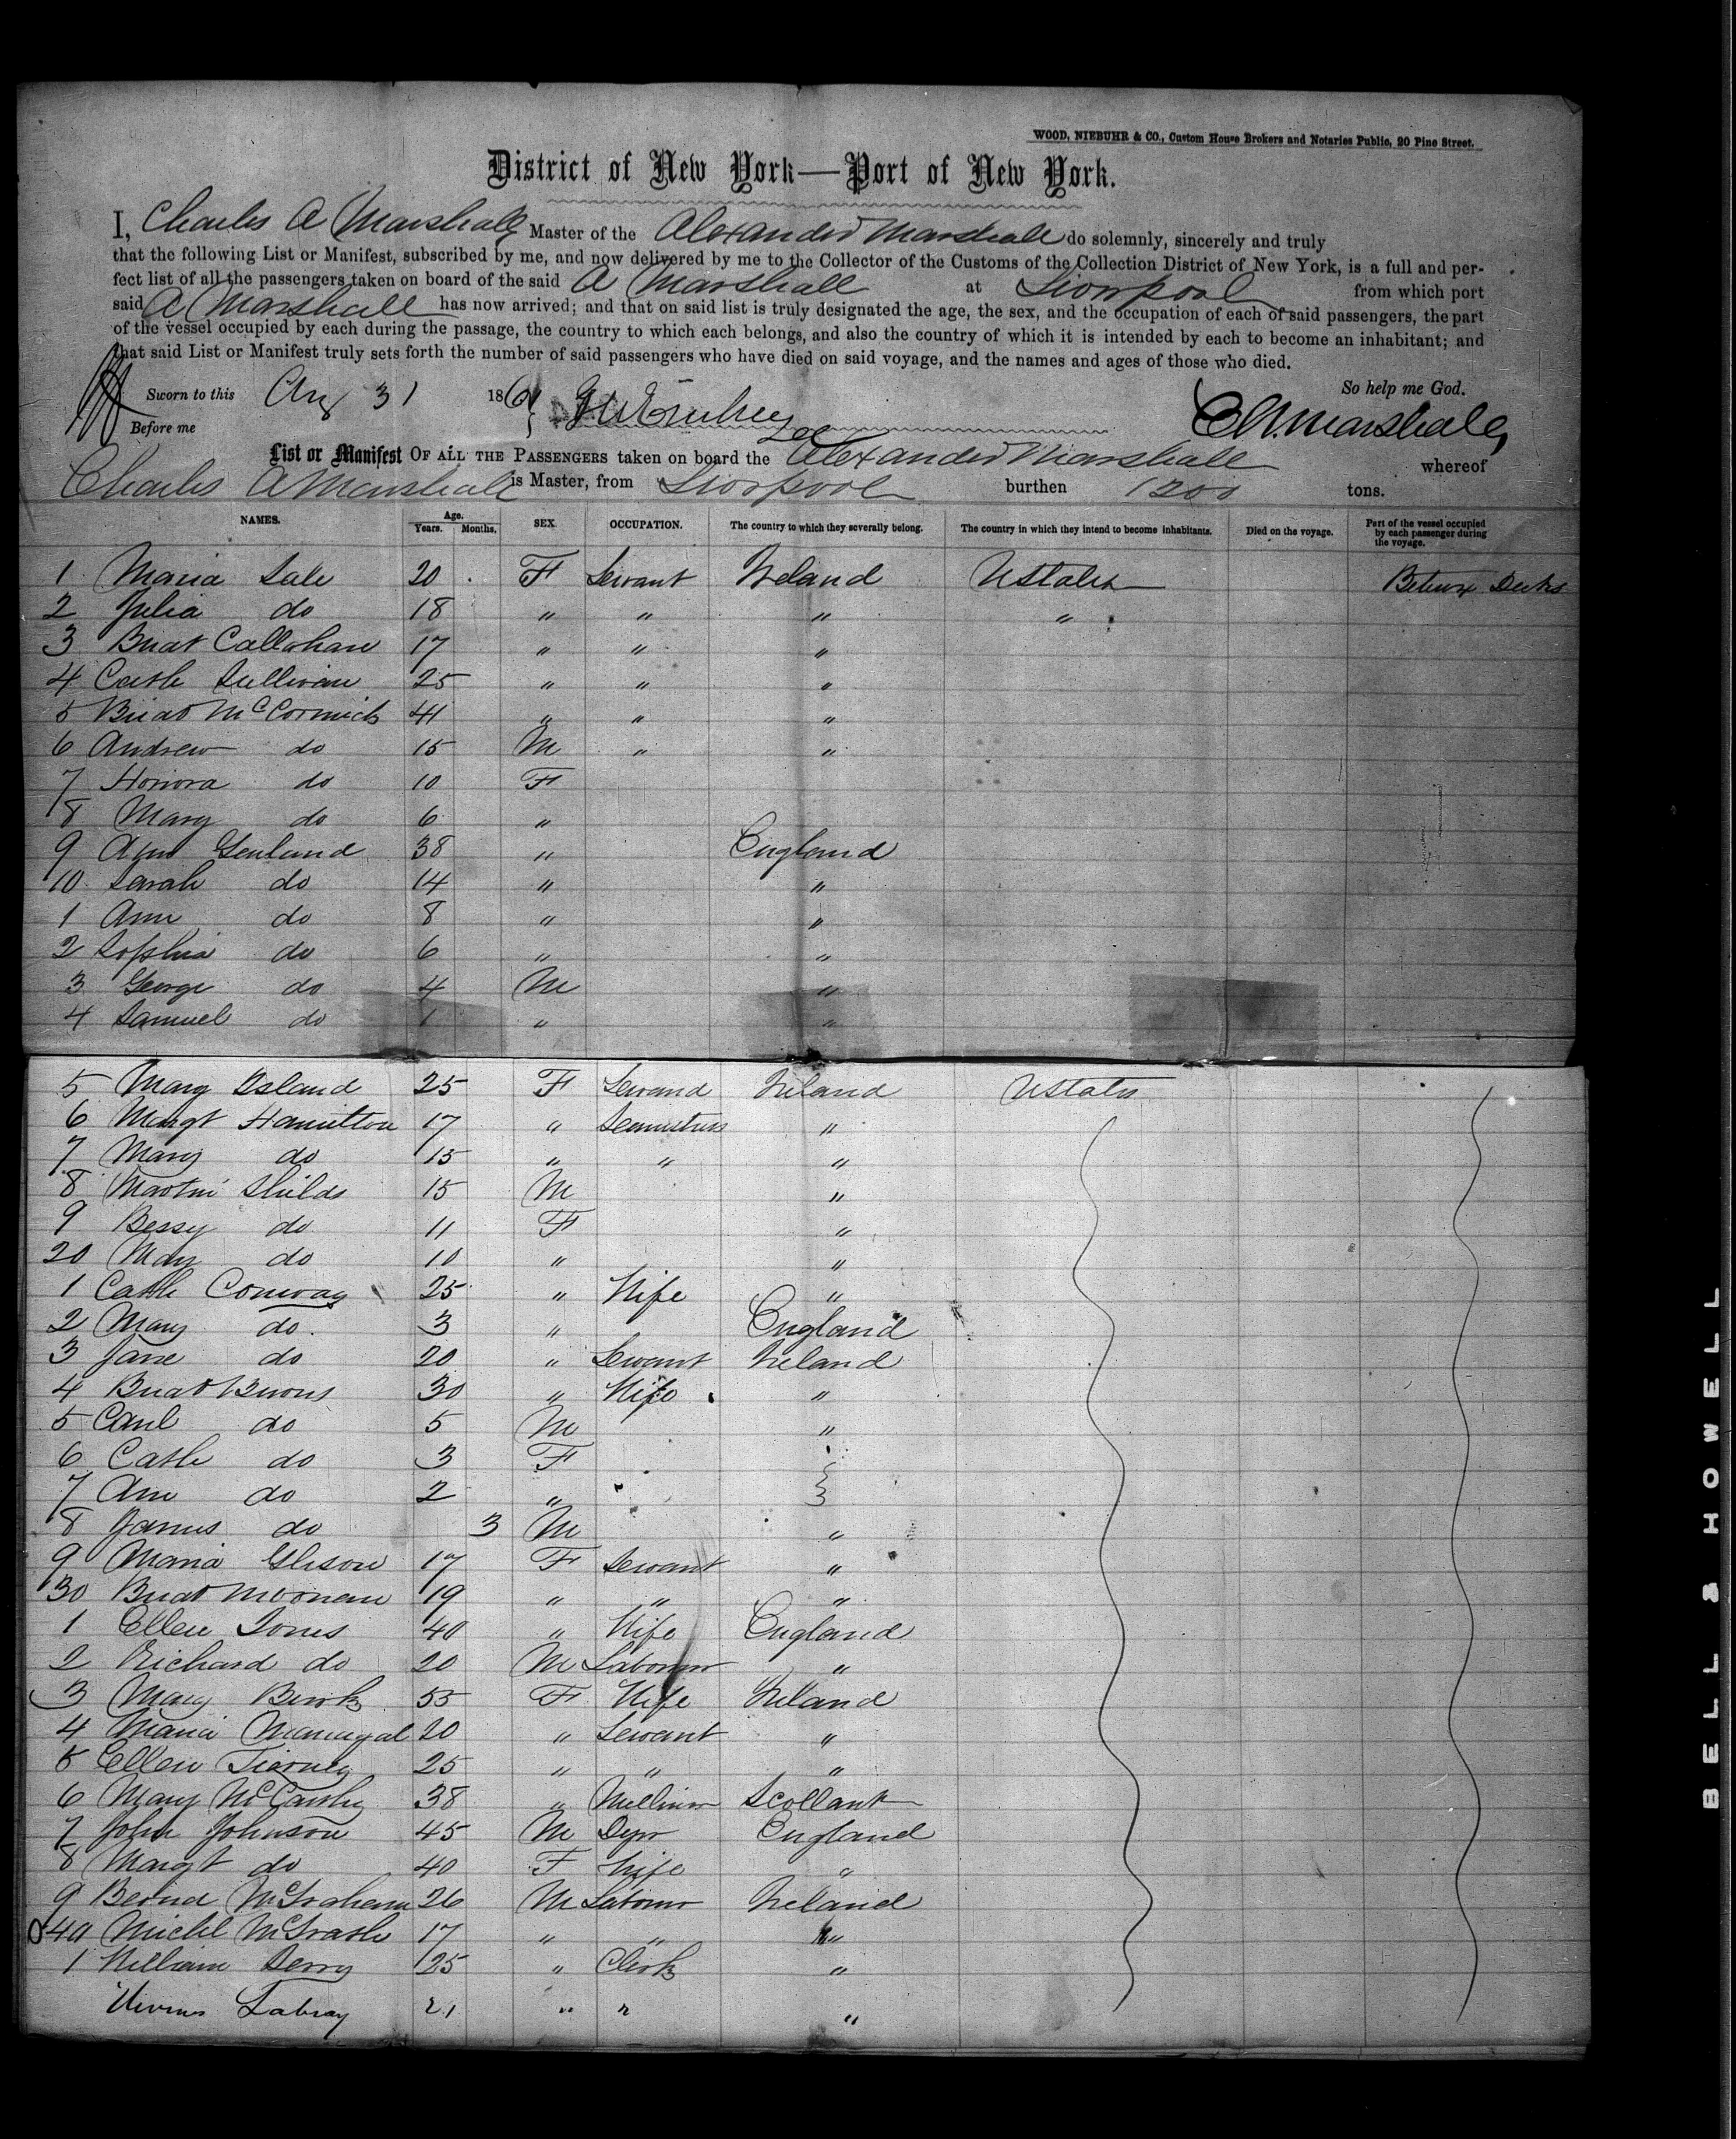 WOOD, NIEBUHR & CO., Custom House Brokers and Notaries Public, 20 Pine Street.
District of New York—Port of New York.
I, Charles A Marshall Master of the Alexander Marshall do solemnly, sincerely and truly
that the following List or Manifest, subscribed by me, and now delivered by me to the Collector of the Customs of the Collection District of New York, is a full and per-
fect list of all the passengers taken on board of the said A Marshall at Liverpool from which port
said A Marshall has now arrived; and that on said list is truly designated the age, the sex, and the occupation of each of said passengers, the part
of the vessel occupied by each during the passage, the country to which each belongs, and also the country of which it is intended by each to become an inhabitant; and
that said List or Manifest truly sets forth the number of said passengers who have died on said voyage, and the names and ages of those who died.
So help me God.
Sworn to this Aug 31 186
Before me C A. Marshall
List or Manifest OF ALL THE PASSENGERS taken on board the Alexander Marshall whereof
Charles A Marshall is Master, from Liverpool burthen 1200 tons.
NAMES. Age. Years. Months. SEX. OCCUPATION. The country to which they severally belong. The country in which they intend to become inhabitants. Died on the voyage. Part of the vessel occupied by each passenger during the voyage.
1 Maria Sale 20 F Servant Ireland UStates Betwx Decks
2 Julia do 18 " " " "
3 Bridt Callahan 17 " " "
4 Cath Sullivan 25 " " "
5 Bridt McCormick 41 " " "
6 Andrew do 15 M " "
7 Honora do 10 F
8 Mary do 6 "
9 38 " England
10 Sarah do 14 " "
1 Ann do 8 " "
2 Sophia do 6 " "
3 George do 4 M "
4 Samuel do 1 " "
5 Mary Island 25 F Servand Ireland UStates
6 Margt Hamilton 17 " Seamstress "
7 Mary do 15 " " "
8 Martin Shields 15 M "
9 Bessy do 11 F "
20 Mary do 10 " "
1 Cath Conway 25 " Wife "
2 Mary do. 3 " England
3 Jane do 20 " Servant Ireland
4 Bridt Burns 30 " Wife "
5 do 5 M "
6 Cath do 3 F
7 Ann do 2 "
8 James do 3 M "
9 Maria Gleson 17 F Servant "
30 Bridt Moonan 19 " " "
1 Ellen Jones 40 " Wife England
2 Richard do 20 M Labourer "
3 Mary 55 F Wife Ireland
4 Maria 20 " Servant "
5 Ellen Tierney 25 " " "
6 Mary McCarthy 38 " Milliner Scotland
7 John Johnson 45 M Dyer England
8 Margt do 40 F Wife "
9 26 M Labourer Ireland
40 Michl McGrath 17 " " "
1 William Berry 25 " Clerk "
21 " " "
BELL & HOWELL